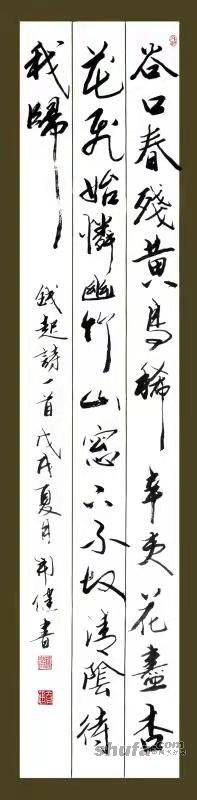 谷口春殘黃鳥稀辛夷花盡杏
花飛始憐幽竹山窓下不改清陰待
我歸
錢起詩一首戊戌夏月健書
shufa.com